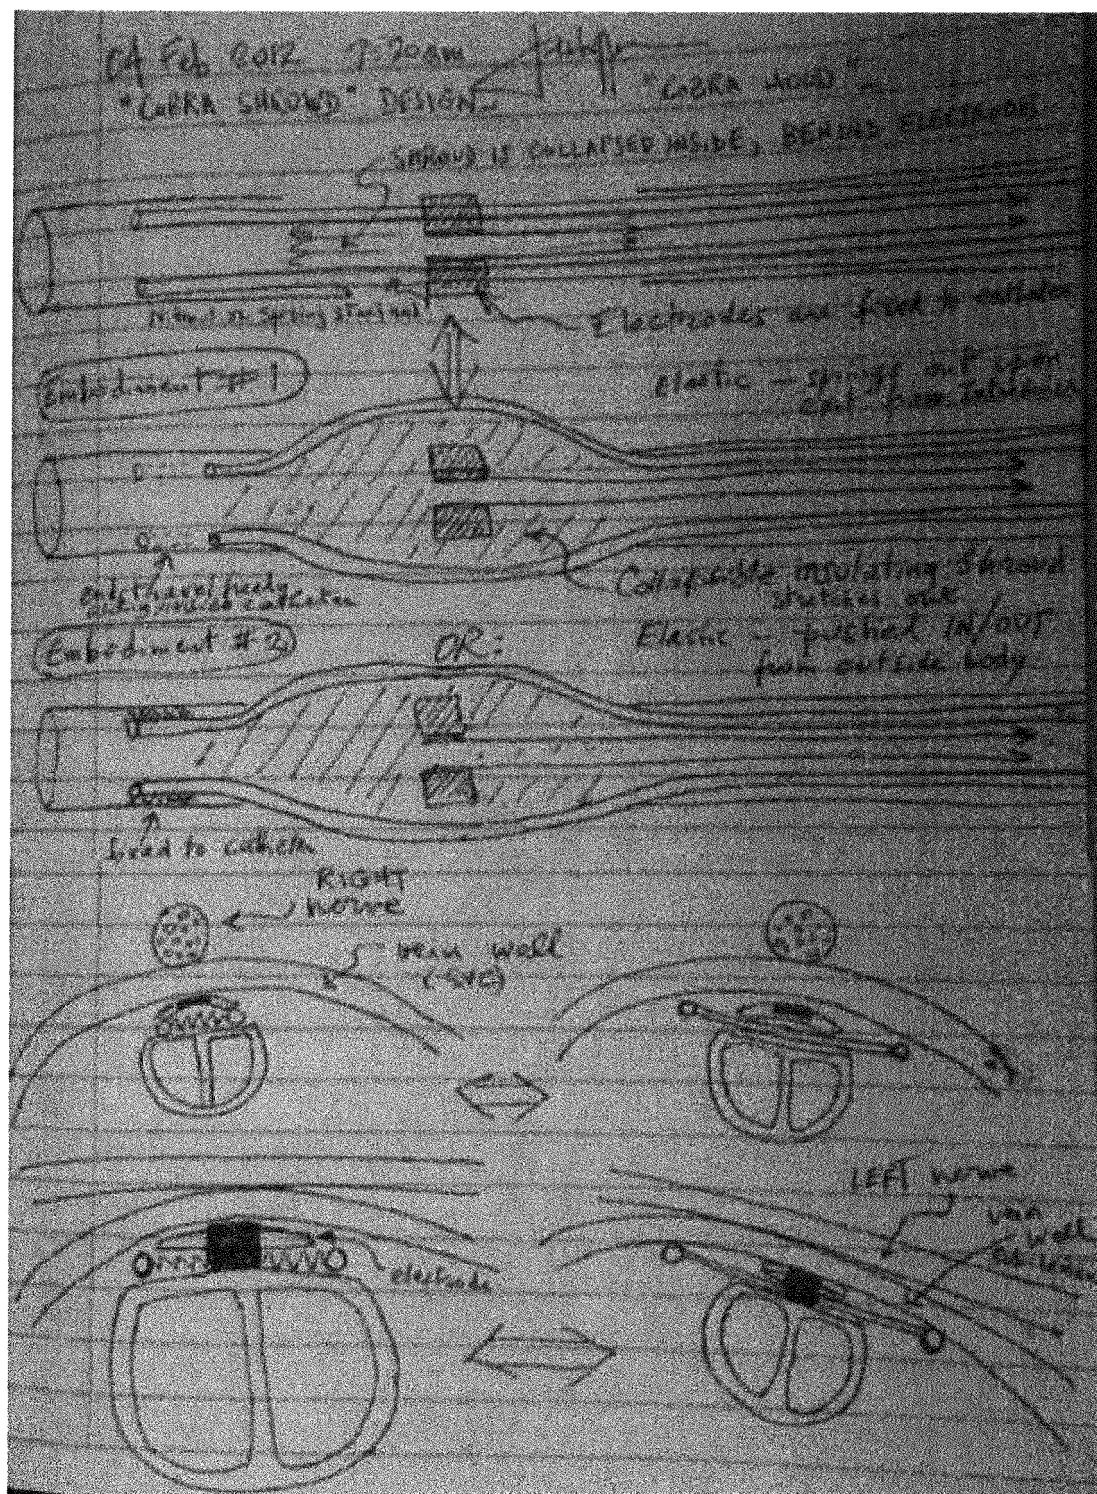 04 Feb 2012 7:20am
"COBRA SHROUD" DESIGN
"COBRA HOOD"
SHROUD IS COLLAPSED INSIDE, BEHIND ELECTRODE
Nitinol or Spring
Electrodes are fixed to catheter
Embodiment #1
Elastic - springs out upon
from Introducer
Collapsible insulating Shroud
stretches out
Embodiment #2
OR:
Elastic - pushed IN/OUT
from outside body
fixed to catheter
RIGHT
nerve
vein wall
(SVC)
LEFT nerve
vein
wall
electrode